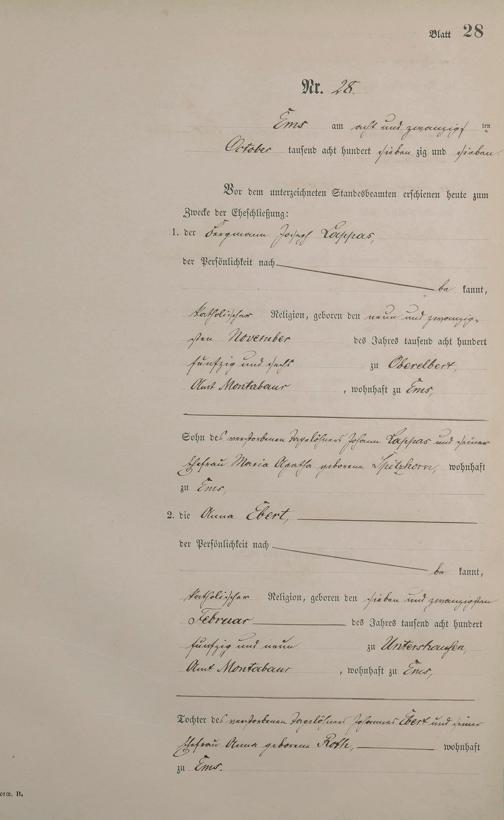 Blatt 28
Nr. 28.
Ems am acht und zwanzigsten
October tausend acht hundert sieben zig und sieben
Vor dem unterzeichneten Standesbeamten erschienen heute zum
Zwecke der Eheschließung:
1. der Bergmann Joseph Lappas,
der Persönlichkeit nach
be kannt,
katholischer Religion, geboren den neun und zwanzig-
sten November des Jahres tausend acht hundert
fünfzig und sechs zu Oberelbert,
Amt Montabaur, wohnhaft zu Ems,
Sohn des verstorbenen Tagelöhners Johann Lappas und seiner
Ehefrau Maria Agatha geborene Spitzhorn, wohnhaft
zu Ems,
2. die Anna Ebert,
der Persönlichkeit nach
be kannt,
katholischer Religion, geboren den sieben und zwanzigsten
Februar des Jahres tausend acht hundert
fünfzig und neun zu Untershausen,
Amt Montabaur, wohnhaft zu Ems,
Tochter des verstorbenen Tagelöhners Johannes Ebert und seiner
Ehefrau Anna geborene Roth, wohnhaft
zu Ems.
B.